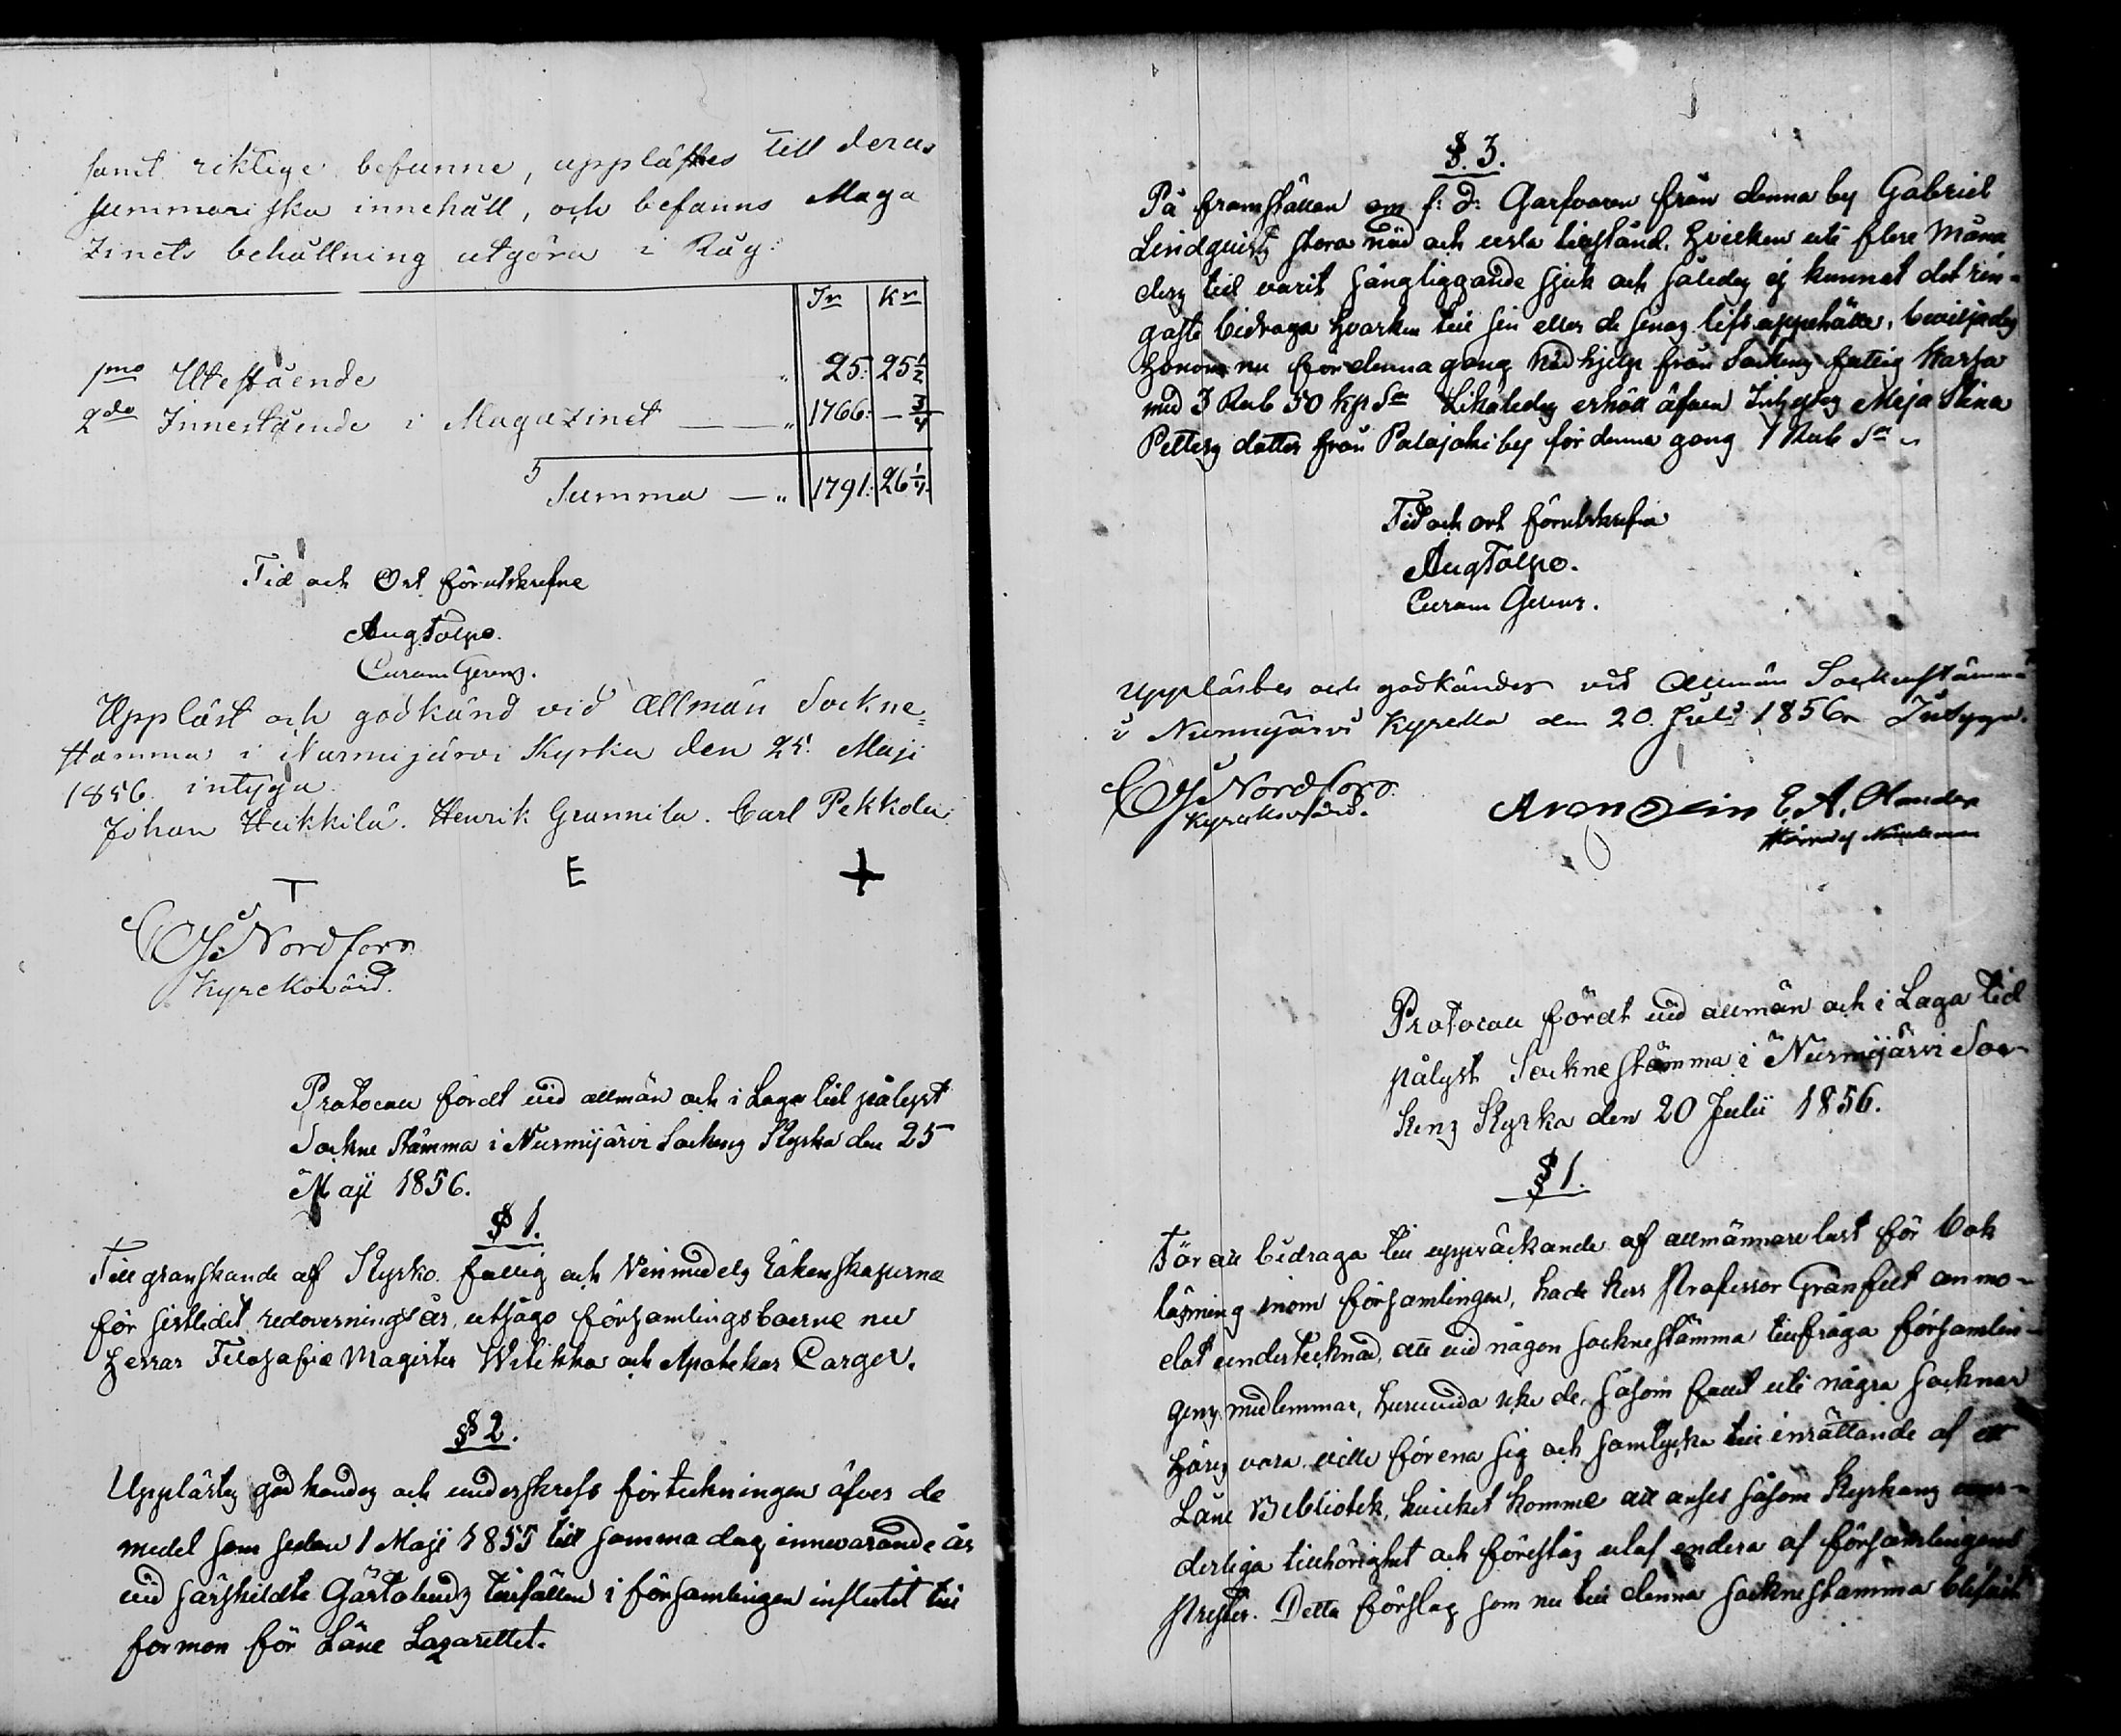 samt riktige befunne, upplästes till deras
summariska innehåll, och befanns Maga
zinets behållning utgöra i Råg:
Tr Kr
1mo Utestående " 25: 25 1/2
2do Innestående i Magazinet — — " 1766: — 3/4
Summa — " 1791: 26 1/4.
Tid och Ort förutskrefne
Aug Tolpo.
Curam Gerens.
Uppläst och godkänd vid Allmän Sockne-
stämma i Nurmijärvi Kyrka den 25. Maji
1856. intyga
Johan Heikkilä. Henrik Grannila. Carl Pekkola
T E +
Nordfors
Kyrckovärd.
Protocoll fördt vid allmän och i Laga tid pålyst
Sockne Stämma i Nurmijärvi Sockens Kyrka den 25
Maji 1856.
§ 1.
Till granskande af Kyrko- fattig och Vinmedels Räkenskaperna
för sistledit redovernings år, utsågo församlingsboerne nu
Herrar Filosofie Magister Witikka och Apothekar Carger.
§ 2.
Upplästes godkendes och underskrefs förteckningen öfver de
medel som sedan 1 Maji 1855 till samma dag innevarande år
vid särskildte Gästabuds tillfällen i församlingen influtit till
formon för Läne Lazarettet.
§. 3.
På framställan om f: d: Garfvaren från denna by Gabriel
Lindquists stora nöd och usla tillstånd, hvilken uti flere Måna
ders tid varit sängliggande sjuk och således ej kunnat det rin-
gaste bidraga hvarken till sin eller de sinas lifsuppehälle, beviljades
honom nu för denna gång nödhjelp från Sockens fattig kassa
med 3 Rub 50 kp Sr Likaledes erhöll äfven Inhyses Maja Stina
Petters dotter från Palojoki by för denna gong 1 Rub Sr
Tid och ort förutskrefna
Aug Tolpo.
Curam Gerens.
Upplästes och godkändes vid Allmän Sockenstämma
i Nurmijärvi Kyrcka den 20. Juli 1856 Intyga.
Nordfors
Kyrckovärd.
E. A. Olander
Protocoll fördt vid allmän och i Laga tid
pålyst Sockne stämma i Nurmijärvi Soc-
kens Kyrka den 20 Julii 1856.
§ 1.
För att bidraga till uppväckande af allmännare lust för bok
läsning inom församlingen, hade Herr Professor Granfelt anmo-
dat undertecknad, att vid någon socknestämma tillfråga församlin-
gens medlemmar, huruvida icke de, såsom fallet uti några socknar
höres vara, ville förena sig och samtycka till inrättande af ett
Låne Bibliotek, hvilket komme att anses såsom Kyrkans
derliga tillhörighet och förestås utaf endera af församlingens
Prester. Detta förslag som nu till denna socknestämma blifvit